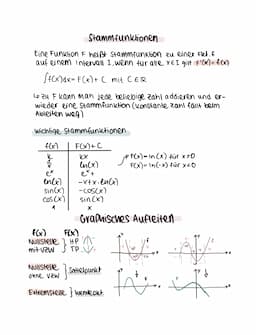 Stammfunktionen
Eine Funktion F heißt Stammfunktion zu einer Fkt. f
auf einem Intervall I, wenn für alle x∈I gilt F'(x)=f(x)
∫f(x)dx = F(x) + C mit C∈R
↳ zu F kann man jede beliebige Zahl addieren und er-
wieder eine Stammfunktion (konstante Zahl fällt beim
Ableiten weg)
wichtige Stammfunktionen
f(x) F(x)+C
k kx
ln(x)
eˣ eˣ+
ln(x) -x+x·ln(x)
sin(x) -cos(x)
cos(x) sin(x)
x x
F(x)=ln(x) für x>0
F(x)=ln(-x) für x<0
Graphisches Aufleiten
f(x) F(x)
Nullstelle HP
mit VZW TP
Nullstelle Sattelpunkt
ohne VZW
Extremstelle Wendepkt